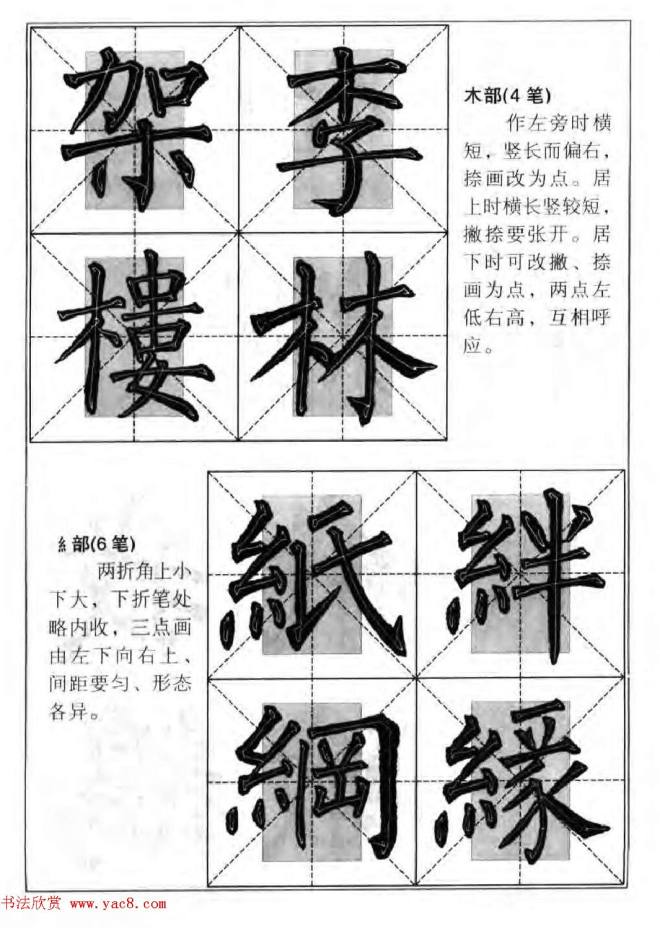 架 李
木部(4 笔)
作左旁时横
短，竖长而偏右，
捺画改为点。居
上时横长竖较短，
撇捺要张开。居
下时可改撇、捺
画为点，两点左
低右高，互相呼
应。
樓 林
紙 絆
糹部(6 笔)
两折角上小
下大，下折笔处
略内收，三点画
由左下向右上、
间距要匀、形态
各异。
綱 緣
书法欣赏 www.yac8.com